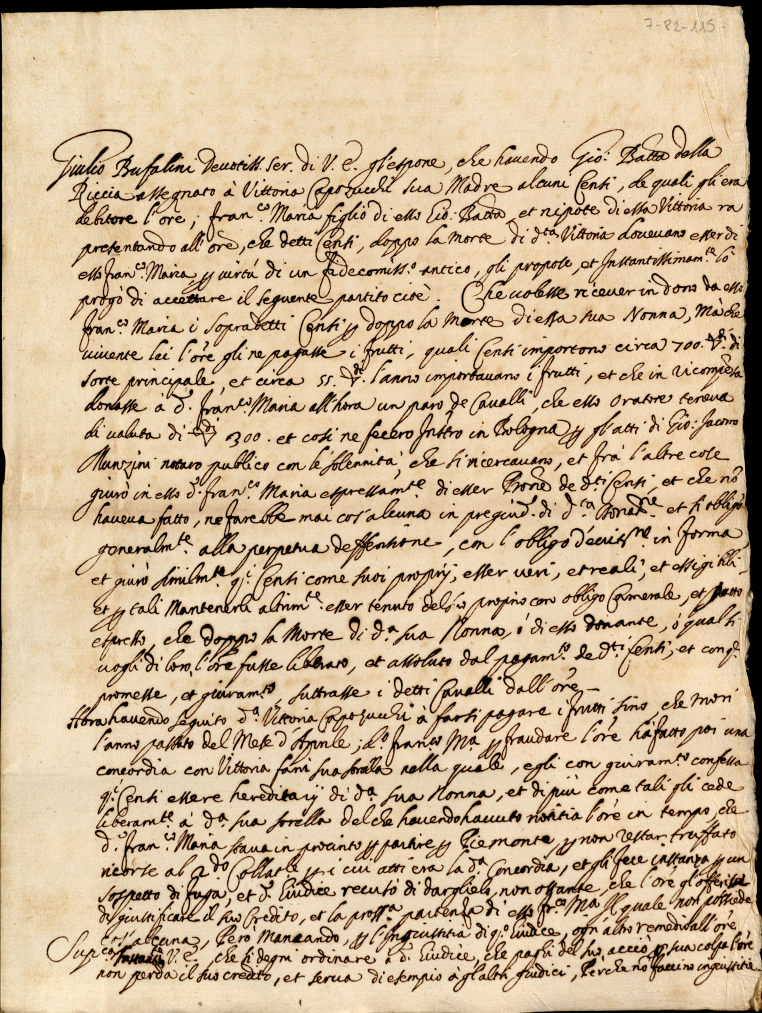 7-82-115-
Giulio Bufalini Devotiss. Ser. di V. E. gl'espone, che havendo Gio: Batta della
Riccia assegnato à Vittoria Capozucchi sua Madre alcuni Censi, de quali gli era
debitore l'ore; Fran.co Maria figlio di esso Gio: Batta, et nipote di essa Vittoria ra
presentando all'ore, che detti Censi, doppo la morte di d.ta Vittoria dovevano esser di
esso Fran.co Maria p virtù di un fidecomiss.o antico, gli propose, et Instantissimam.te lo
pregò di accettare il seguente partito cioè. Che volesse ricever in dono da esso
Fran.co Maria i sopradetti Censi p doppo la morte di essa sua Nonna, Mà che
vivente lei l'ore gli ne pagasse i frutti, quali Censi importono circa 700. di
sorte principale, et circa 55. l'anno importavano i frutti, et che in ricompensa
donasse a d.o Fran.co Maria all'hora un paro de Cavalli, che esso Oratore teneva
di valuta di 300. et così ne fecero Instro in Bologna p gli atti di Gio: Jacomo
Munzini notaro publico con le solennità, che si ricercavano, et frà l'altre cose
giurò in esso d.o Fran.co Maria espressam.te di esser Prone de d.ti Censi, et che nō
haveva fatto, ne farebbe mai cos'alcuna in pregiud.o di d.ta Donat.ne et si obligò
generalm.te alla perpetua deffensione, con l'obligo in forma
et giurò similm.te q.i Censi come suoi proprij, esser veri, et reali, et essigibili
et p tali Mantenerli altrim.te esser tenuto del proprio con obligo Camerale, et patto
espresso, che doppo la Morte di d.a sua Nonna, ò di esso donante, ò qual si
vogli di loro, l'ore fusse liberato, et assoluto dal pagam.to de d.ti Censi, et con q.e
promesse, et giuram.to, suttrasse i detti Cavalli dall'ore
Hora havendo seguito d.a Vittoria Capozucchi à farsi pagare i frutti sino, che morì
l'anno passato del Mese d'Aprile; d.o Franco Ma p fraudare l'ore hà fatto poi una
concordia con Vittoria sua sorella nella quale, egli con giuram.to confessa
q.i Censi essere hereditarij di d.a sua Nonna, et di più come tali gli cede
liberam.te à d.a sua sorella del che havendo havuto notitia l'ore in tempo, che
d.o Fran.co Maria stava in procinto p partire p Piemonte, p non restar truffato
ricorse al Collat.le p i cui atti era la d.a Concordia, et gli fece instanza p un
sospetto di fuga, et d.o Giudice recusò di dargliela, non ostante, che l'ore gl'offerisse
di giustificare il suo Credito, et la pross.a partenza di esso Fr.co Ma Il quale non possiede
cos'alcuna, Però Mancando, p l'Ingiustitia di q.o Giudice, ogn'altro remedio all'ore
Sup.ca V. E. che si degni ordinare à d.o Giudice, che paghi del suo, acciò p sua colpa l'ore
non perda il suo credito, et serva di esempio à gl'altri giudici, Perche nō faccino ingiustitie